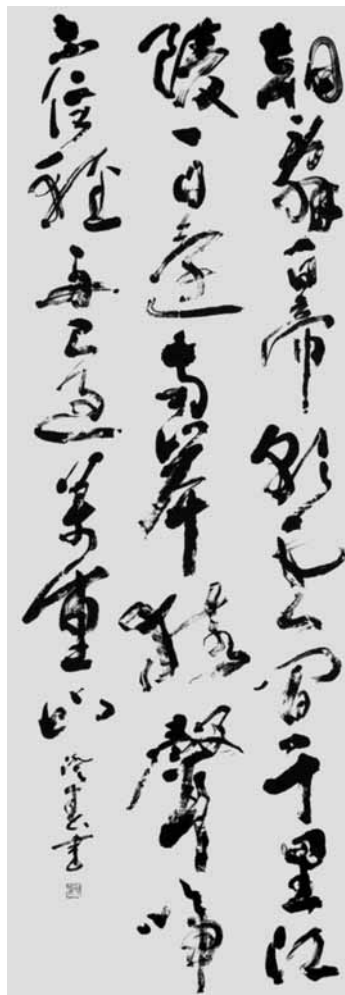 朝辭白帝彩雲間千里江
陵一日還兩岸猿聲啼
不住輕舟已過萬重山
書